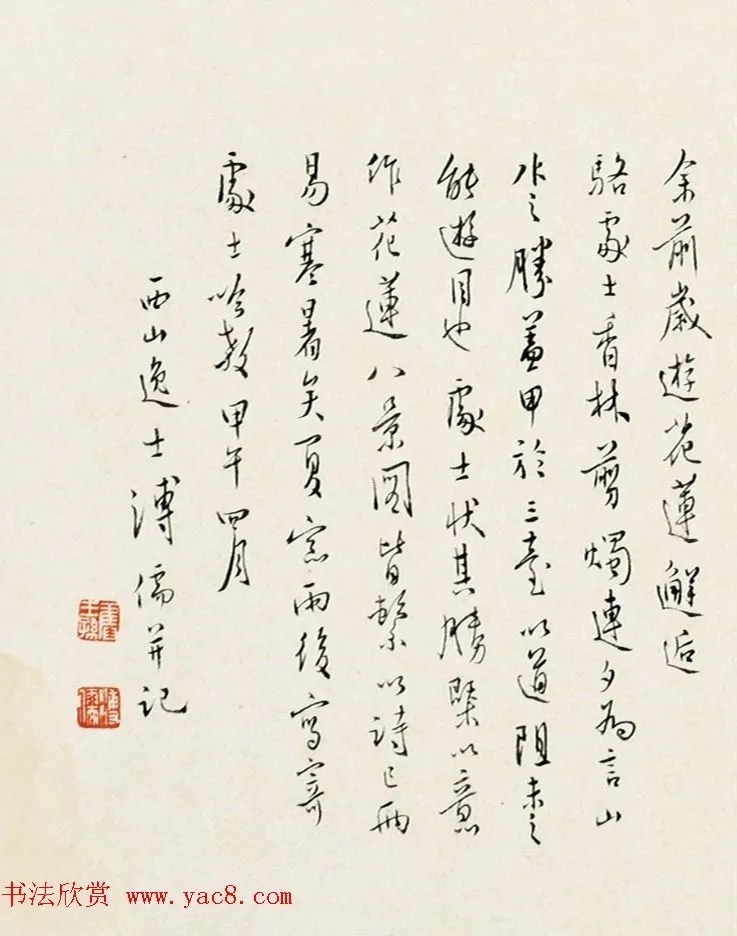 余前歲遊花蓮邂逅
駱處士香林剪燭連夕為言山
水之勝蓋甲於三臺以道阻未之
能遊目也處士狀其勝槩以意
作花蓮八景圖皆繫以詩已兩
易寒暑矣夏窓雨後寫寄
處士吟教甲午四月
西山逸士溥儒并記
舊王孫
溥儒
书法欣赏 www.yac8.com